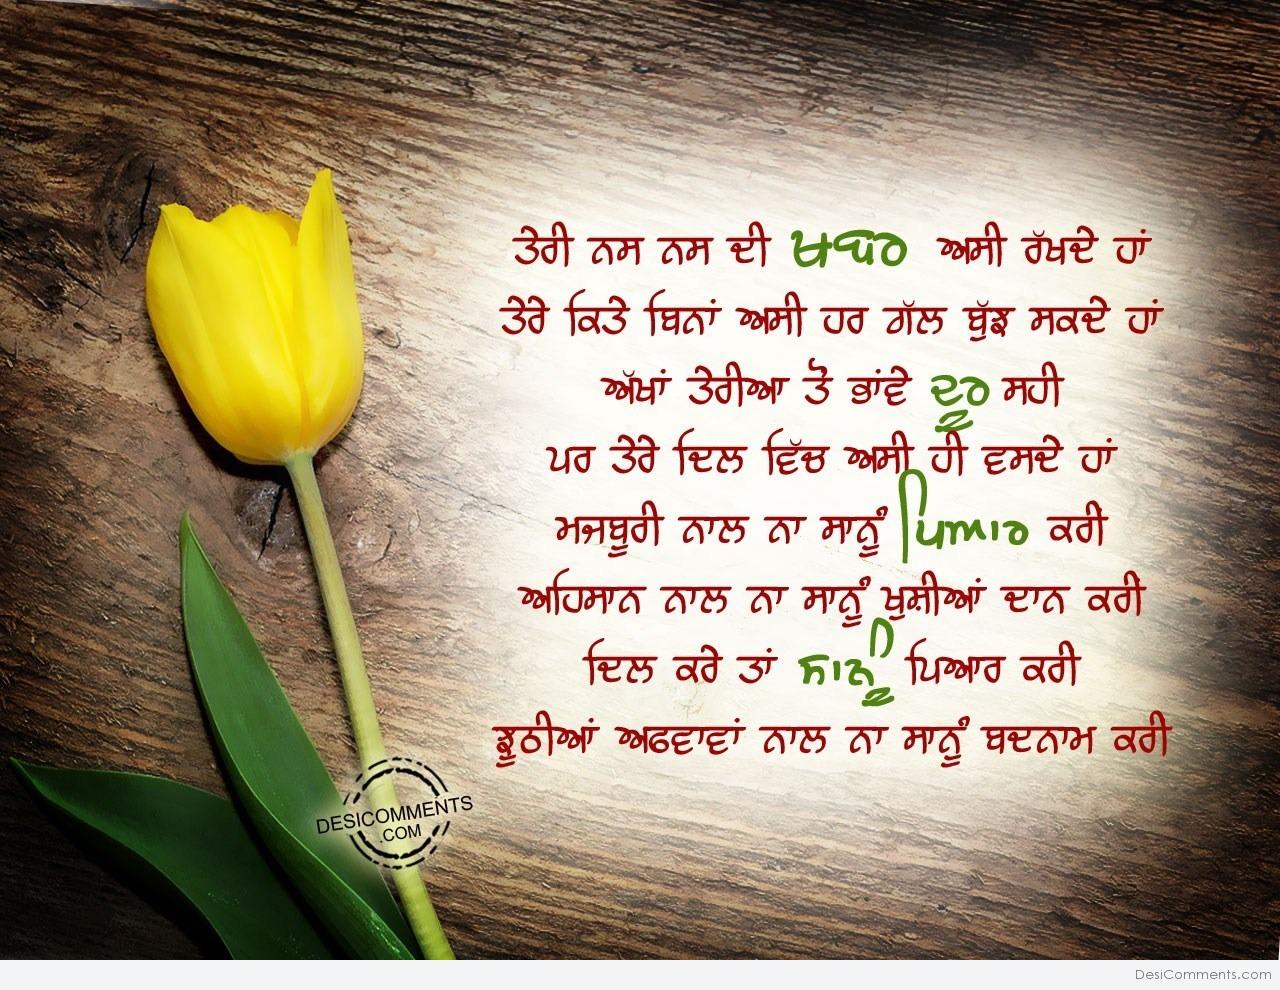 ਤੇਰੀ ਨਸ ਨਸ ਦੀ ਖਬਰ ਅਸੀ ਰੱਖਦੇ ਹਾਂ
ਤੇਰੇ ਕਿਤੇ ਬਿਨਾਂ ਅਸੀ ਹਰ ਗੱਲ ਬੁੱਝ ਸਕਦੇ ਹਾਂ
ਅੱਖਾਂ ਤੇਰੀਆ ਤੋਂ ਭਾਂਵੇ ਦੂਰ ਸਹੀ
ਪਰ ਤੇਰੇ ਦਿਲ ਵਿੱਚ ਅਸੀ ਹੀ ਵਸਦੇ ਹਾਂ
ਮਜਬੂਰੀ ਨਾਲ ਨਾ ਸਾਨੂੰ ਪਿਆਰ ਕਰੀਂ
ਅਹਿਸਾਨ ਨਾਲ ਨਾ ਸਾਨੂੰ ਖੁਸ਼ੀਆਂ ਦਾਨ ਕਰੀਂ
ਦਿਲ ਕਰੇ ਤਾਂ ਸਾਨੂੰ ਪਿਆਰ ਕਰੀਂ
ਝੂਠੀਆਂ ਅਫਵਾਵਾਂ ਨਾਲ ਨਾ ਸਾਨੂੰ ਬਦਨਾਮ ਕਰੀਂ
DESICOMMENTS
.COM
DesiComments.com